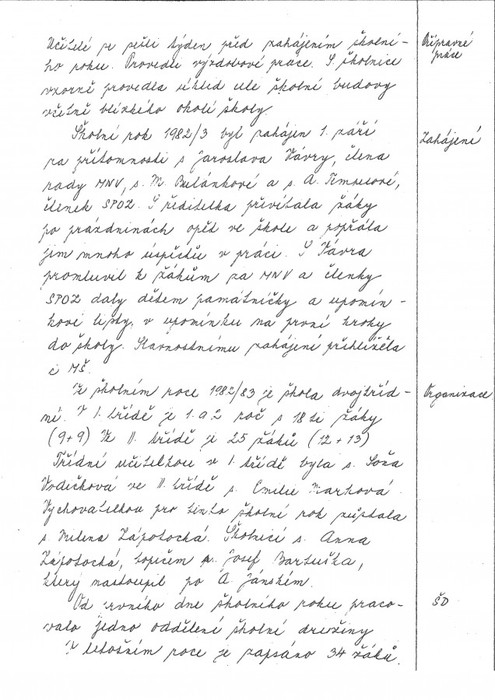 Učitelé se sešli týden před zahájením škol­ní-
ho roku. Provedli výzdobové práce. S. školnice
vzorně provedla úklid celé školní budovy
včetně blízkého okolí školy.
Přípravné
práce
Školní rok 1982/3 byl zahájen 1. září
za přítomnosti s Jaroslava Vávry, člena
rady MNV, s. M. Bulánkové a s. A.
členek SPOZ. S ředitelka přivítala žáky
po prázdninách opět ve škole a popřála
jim mnoho úspěchů v práci. S Vávra
promluvil k žákům za MNV a členky
SPOZ daly dětem památníčky a upomín-
kové listy, v upomínku na první kroky
do školy. Slavnostnímu zahájení přihlížela
i MŠ.
Zahájení
Ve školním roce 1982/83 je škola dvojtříd-
ní. V I. třídě je 1. a 2. roč s 18 ti žáky
(9+9) Ve II. třídě je 25 žáků (12+13)
Třídní učitelkou v I. třídě byla s. Soňa
Vodičková ve II. třídě s. Emilie Marková.
Vychovatelkou pro tento školní rok zůstala
s. Milena Zápotocká. Školnicí s. Anna
Zápotocká, topičem s. Josef Bartuška,
který nastoupil po A. Jánském.
Organizace
Od prvního dne školního roku praco-
valo jedno oddělení školní družiny
V letošním roce je zapsáno 34 žáků.
ŠD